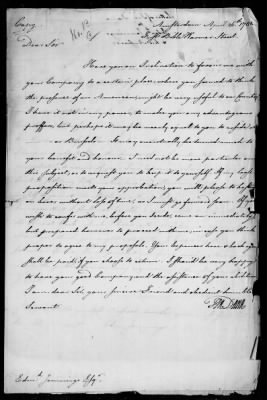 Copy
Amsterdam April 26. 1781
Dear Sir
Have you an Inclination to favour me with
your Company to a certain place, where you seemed to think
the presence of an American, might be very useful to our Country
I have it not in my power, to make you any advantageous
proffers, but perhaps it may be nearly equal to you to reside
or Brussels. It may eventually, be turned much to
your benefit and honour. I need not be more particular on
this Subject, or to request you to keep it to yourself. If my
proposition meets your approbation, you will please to
here, without loss of time, as I must go forward soon. If you
wish to confer with me, before you decide, come on immediately
but prepared however to proceed with me, in case you think
proper to agree to my proposals. Your expences here & back
shall be paid if you choose to return. I should be very happy
to have your good Company and the assistance of your
I am dear Sir, your sincere Friend and obedient humble
Servant
Edmd. Jennings Esqr.